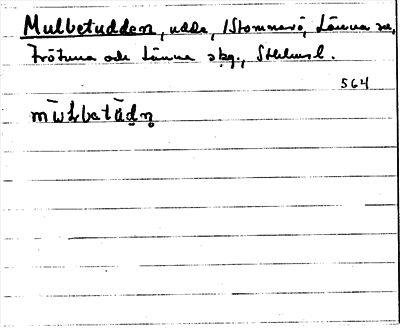 Mulbetudden, udde, Stomnarö, Länna sn,
Frötuna och Länna skg., Sthlms l.
564
mùLbatùdn̥